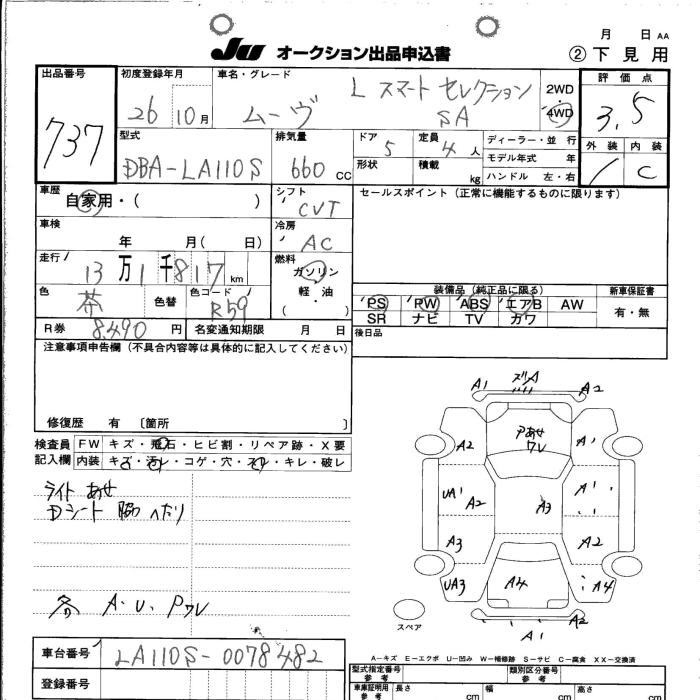 月 日 AA
JU オークション出品申込書 ②下見用
出品番号 737
初度登録年月 26年 10月
車名・グレード ムーヴ L スマート セレクション SA
2WD
4WD
評価点 3.5
外装 内装 C
型式 DBA-LA110S
排気量 660 CC
ドア 5
形状
定員 4 人
積載 kg
ディーラー・並行
モデル年式 年
ハンドル 左・右
車歴 自家用・( )
シフト CVT
セールスポイント(正常に機能するものに限ります)
車検 年 月( 日)
冷房 AC
走行 13万1千817km
燃料 ガソリン
軽・油
( )
色 茶 色替
色コード R59
装備品(純正品に限る)
PS PW ABS エアB AW
SR ナビ TV カワ
新車保証書
有・無
R券 8,490 円 名変通知期限 月 日
後日品
注意事項申告欄(不具合内容等は具体的に記入してください)
修復歴 有 〔箇所 〕
検査員 FW キズ・飛石・ヒビ割・リペア跡・X要
記入欄 内装 キズ・汚レ・コゲ・穴・スレ・キレ・破レ
ライト あせ
Dシート 脇 へたり
各 A・U・Pワレ
A1 ズリA A2
A2 Pあせ ワレ A1
UA1 A2 A3 A1
A3 A2
UA3 A4 A4
スペア
A2
A1
A-キズ E-エクボ U-凹み W-補修跡 S-サビ C-腐食 XX-交換済
車台番号 LA110S-0078482
登録番号
型式指定番号 参考
類別区分番号 参考
車庫証明用 参考 長さ cm 幅 cm 高さ cm